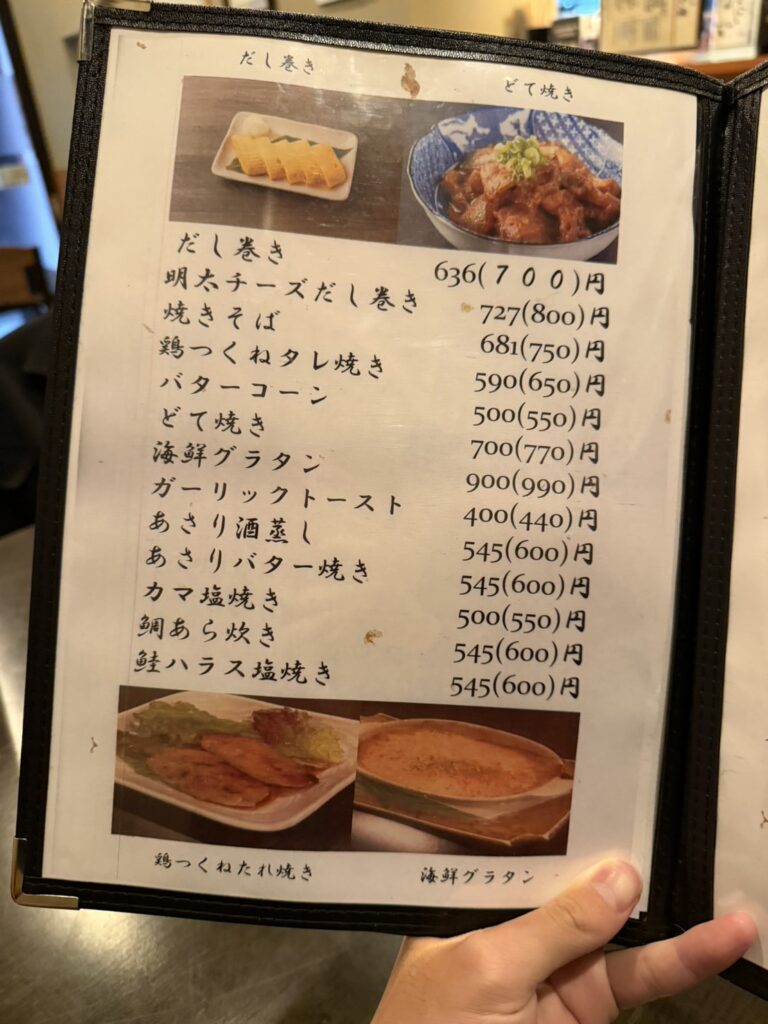 だし巻き
どて焼き
だし巻き 636(700)円
明太チーズだし巻き 727(800)円
焼きそば 681(750)円
鶏つくねタレ焼き 590(650)円
バターコーン 500(550)円
どて焼き 700(770)円
海鮮グラタン 900(990)円
ガーリックトースト 400(440)円
あさり酒蒸し 545(600)円
あさりバター焼き 545(600)円
カマ塩焼き 500(550)円
鯛あら炊き 545(600)円
鮭ハラス塩焼き 545(600)円
鶏つくねたれ焼き
海鮮グラタン